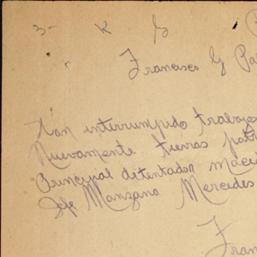 3- K
Francisco
han interrumpido trabajos
Nuevamente tierras
Principal detentador
Jefe Manzano Mercedes
Fran